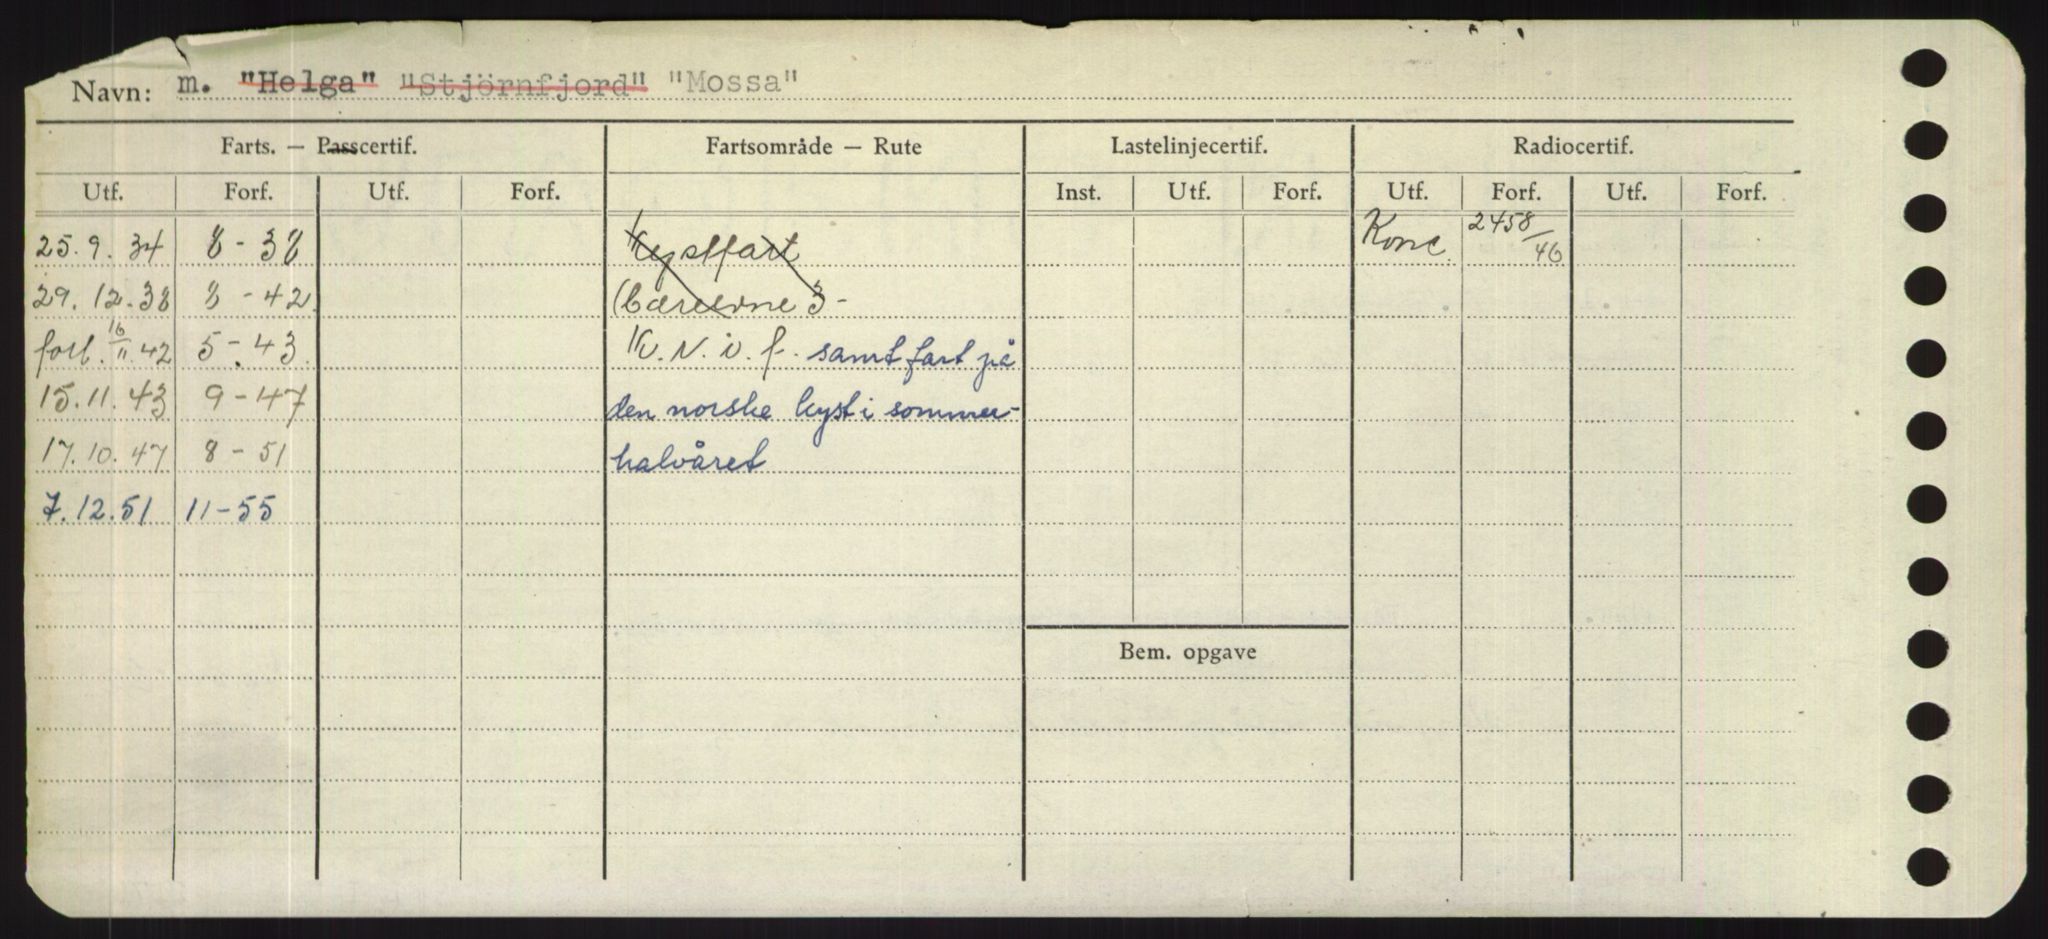 Navn: m. "Helga" "Stjörnfjord" "Mossa"
Farts. — Passcertif. Fartsområde — Rute Lastelinjecertif. Radiocertif.
Utf. Forf. Utf. Forf. Inst. Utf. Forf. Utf. Forf. Utf. Forf.
25.9.34 8-38 Kystfart Konc. 2458/46
29.12.38 8-42 3-
forl. 16/11.42 5-43 K.N.i.f. samt fart på
15.11.43 9-47 den norske kyst i sommer-
17.10.47 8-51 halvåret
7.12.51 11-55
Bem. opgave